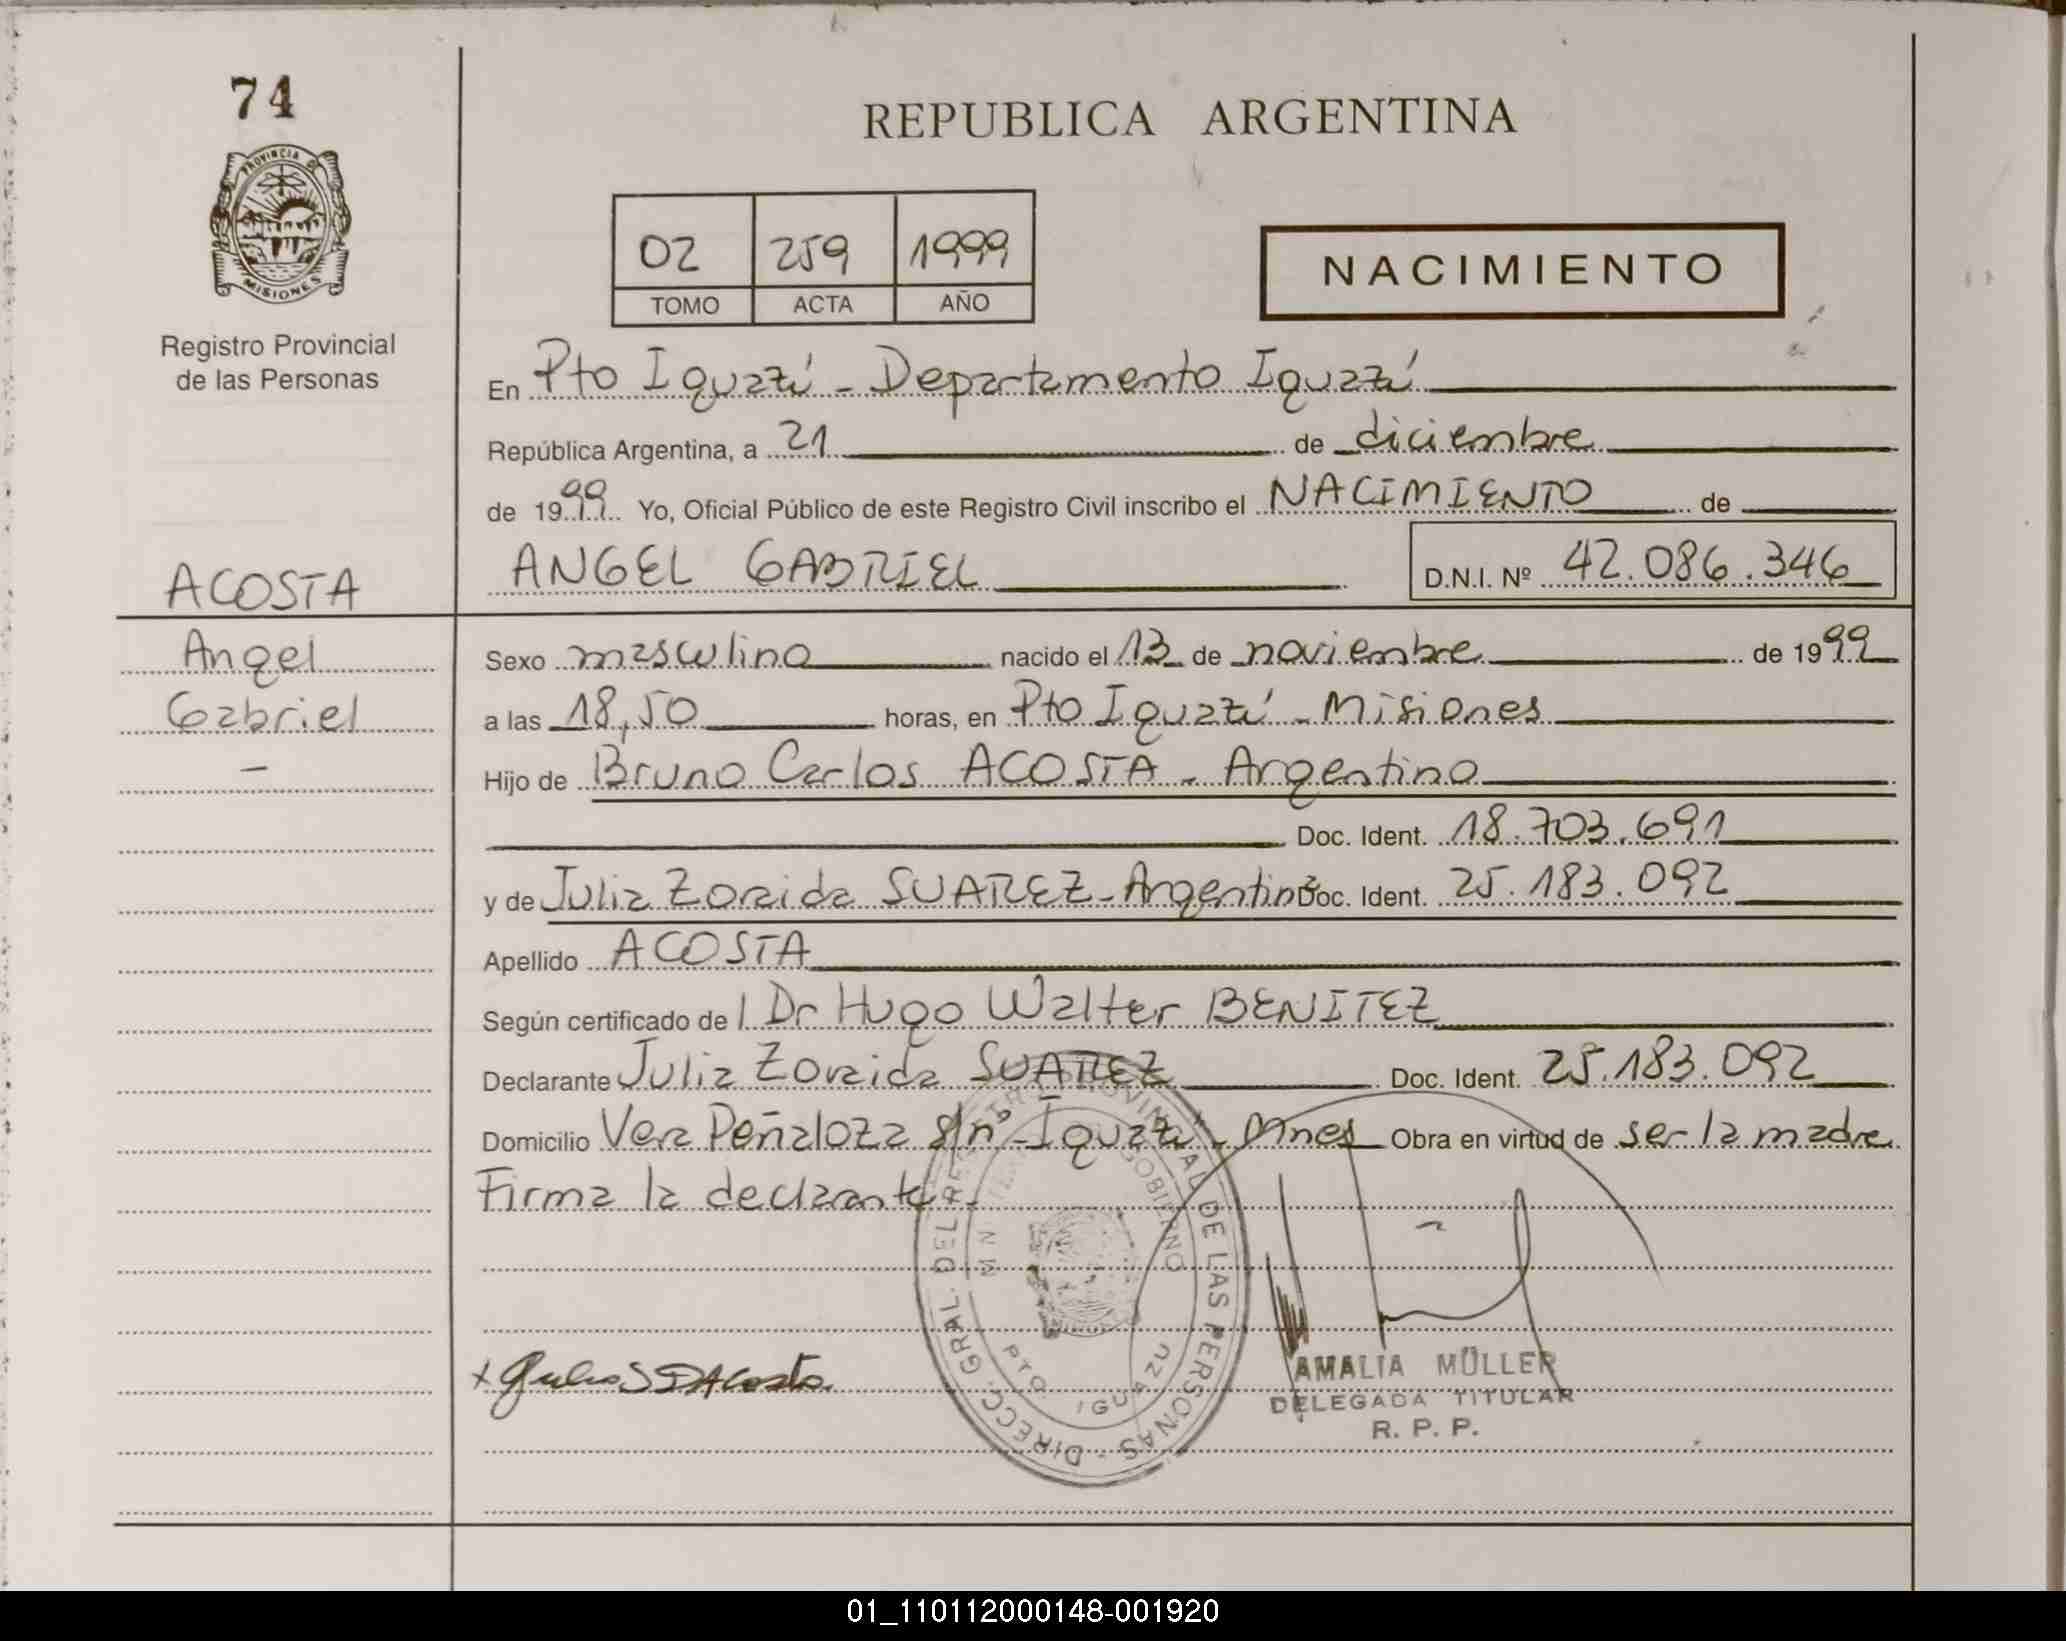 74
PROVINCIA DE
MISIONES
Registro Provincial
de las Personas
REPUBLICA ARGENTINA
02 259 1999
TOMO ACTA AÑO
NACIMIENTO
En Pto Iguazú - Departamento Iguazú
República Argentina, a 21 de diciembre
de 1999 Yo, Oficial Público de este Registro Civil inscribo el NACIMIENTO de
ACOSTA
ANGEL GABRIEL D.N.I. Nº 42.086.346
Angel
Gabriel
-
Sexo masculino nacido el 13 de noviembre de 1999
a las 18,50 horas, en Pto Iguazú - Misiones
Hijo de Bruno Carlos ACOSTA - Argentino
Doc. Ident. 18.703.691
y de Julia Zoraida SUAREZ - Argentina Doc. Ident. 25.183.092
Apellido ACOSTA
Según certificado de l Dr Hugo Walter BENITEZ
Declarante Julia Zoraida SUAREZ Doc. Ident. 25.183.092
Domicilio Vera Peñaloza s/nº - Iguazú - Mnes Obra en virtud de ser la madre
Firma la declarante -
DIRECC. GRAL. DEL REGISTRO PROVINCIAL DE LAS PERSONAS -
GOBIERNO
PTO IGUAZU
AMALIA MÜLLER
DELEGADA TITULAR
R. P. P.
01_110112000148-001920